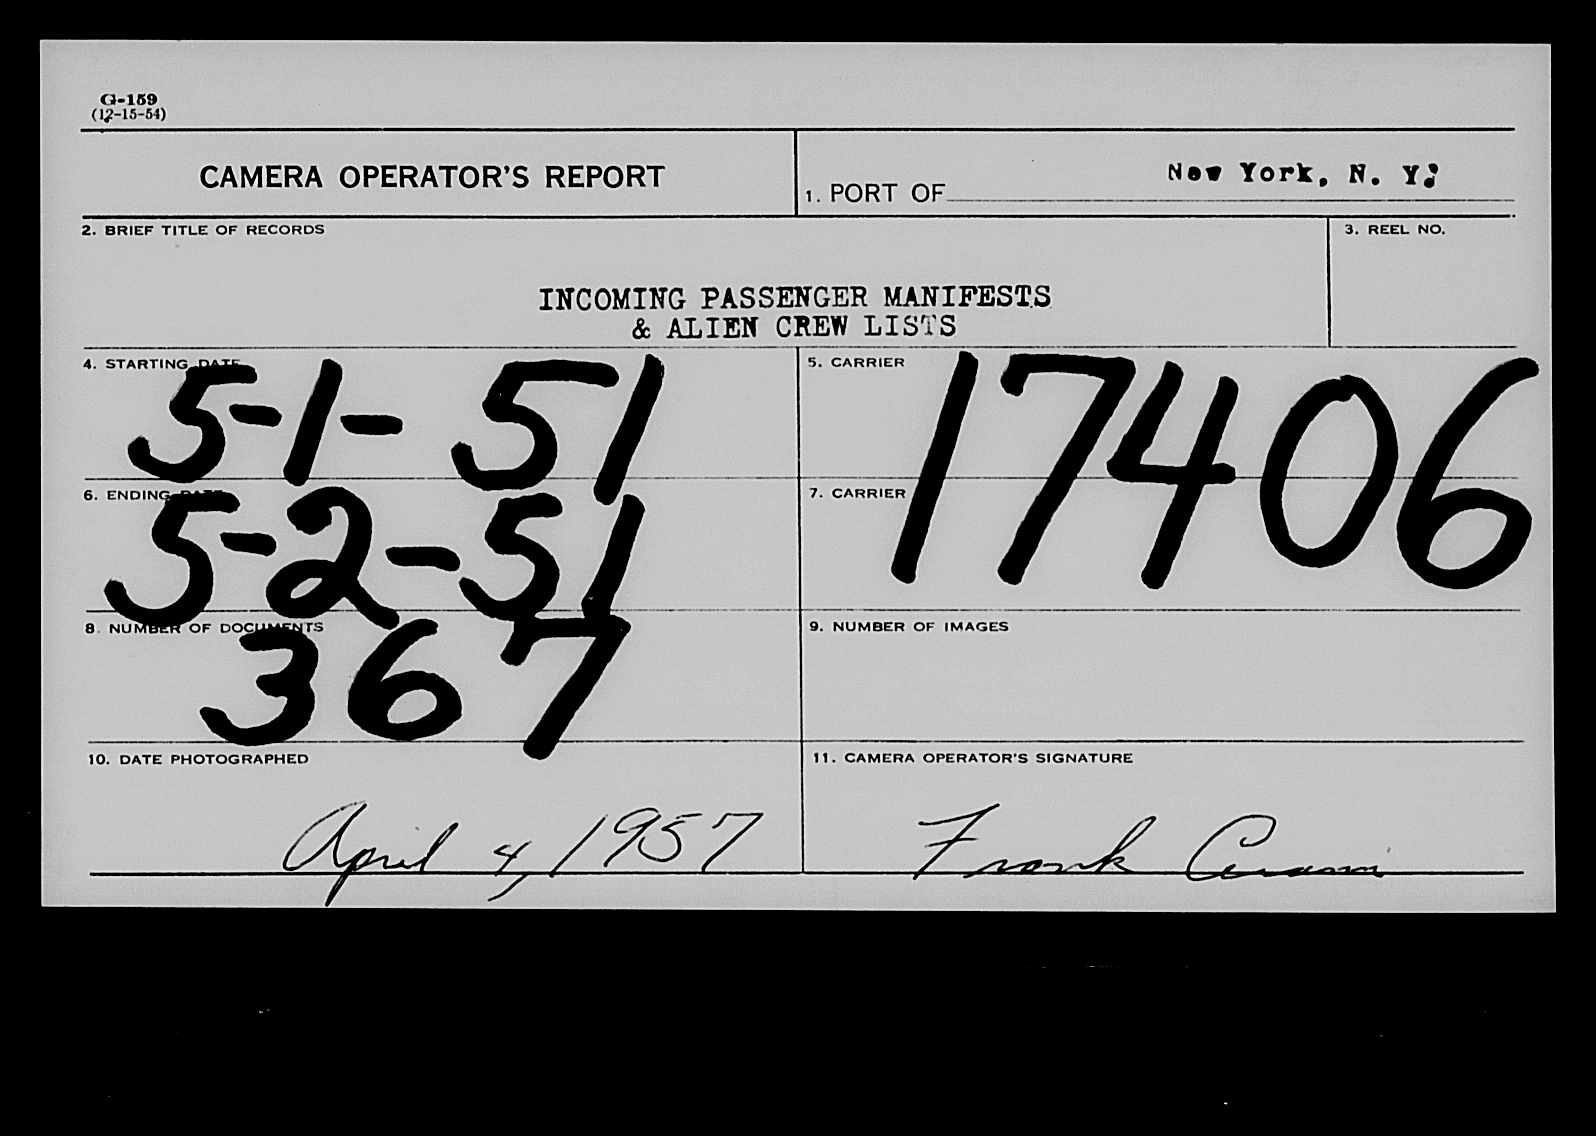 G-159
(12-15-54)
CAMERA OPERATOR'S REPORT
1. PORT OF New York, N. Y.
2. BRIEF TITLE OF RECORDS
3. REEL NO.
INCOMING PASSENGER MANIFESTS
& ALIEN CREW LISTS
4. STARTING DATE
5-1-51
5. CARRIER
17406
6. ENDING DATE
5-2-51
7. CARRIER
8. NUMBER OF DOCUMENTS
367
9. NUMBER OF IMAGES
10. DATE PHOTOGRAPHED
April 4, 1957
11. CAMERA OPERATOR'S SIGNATURE
Frank